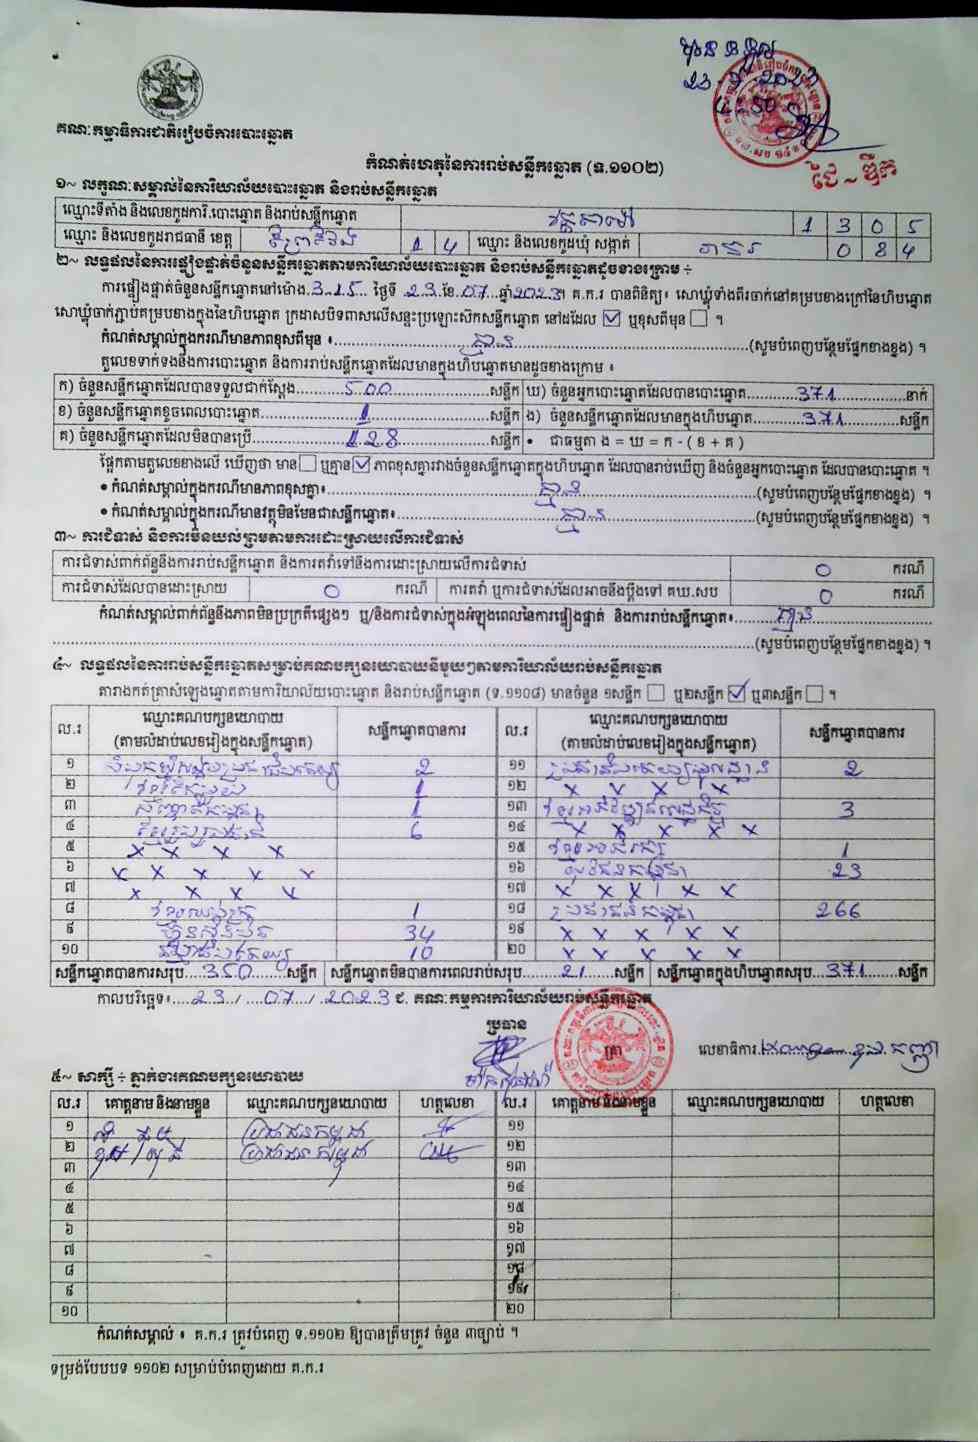 គណៈកម្មាធិការជាតិរៀបចំការបោះឆ្នោត
កំណត់ហេតុនៃការរាប់សន្លឹកឆ្នោត (ទ.១១០២)
១~ លក្ខណៈសម្គាល់នៃការិយាល័យបោះឆ្នោត និងរាប់សន្លឹកឆ្នោត
ឈ្មោះទីតាំង និងលេខកូដការិ.បោះឆ្នោត និងរាប់សន្លឹកឆ្នោត 1 3 0 5
ឈ្មោះ និងលេខកូដរាជធានី ខេត្ត ព្រៃវែង 1 4 ឈ្មោះ និងលេខកូដឃុំ សង្កាត់ 0 8 4
២~ លទ្ធផលនៃការផ្ទៀងផ្ទាត់ចំនួនសន្លឹកឆ្នោតតាមការិយាល័យបោះឆ្នោត និងរាប់សន្លឹកឆ្នោតដូចខាងក្រោម ÷
ការផ្ទៀងផ្ទាត់ចំនួនសន្លឹកឆ្នោតនៅម៉ោង 3.15 ថ្ងៃទី 23 ខែ 07 ឆ្នាំ 2023។ គ.ក.រ បានពិនិត្យ៖ សោឃ្មុំទាំងពីរចាក់នៅគម្របខាងក្រៅនៃហិបឆ្នោត
សោឃ្មុំចាក់ភ្ជាប់គម្របខាងក្នុងនៃហិបឆ្នោត ក្រដាសបិទពាសលើសន្ទះប្រឡោះស៊កសន្លឹកឆ្នោត នៅដដែល ☑ ឬខុសពីមុន ☐ ។
កំណត់សម្គាល់ក្នុងករណីមានភាពខុសពីមុន ៖ គ្មាន (សូមបំពេញបន្ថែមផ្នែកខាងខ្នង) ។
តួលេខទាក់ទងនឹងការបោះឆ្នោត និងការរាប់សន្លឹកឆ្នោតដែលមានក្នុងហិបឆ្នោតមានដូចខាងក្រោម ៖
ក) ចំនួនសន្លឹកឆ្នោតដែលបានទទួលជាក់ស្តែង 500 សន្លឹក ឃ) ចំនួនអ្នកបោះឆ្នោតដែលបានបោះឆ្នោត 371 នាក់
ខ) ចំនួនសន្លឹកឆ្នោតខូចពេលបោះឆ្នោត 1 សន្លឹក ង) ចំនួនសន្លឹកឆ្នោតដែលមានក្នុងហិបឆ្នោត 371 សន្លឹក
គ) ចំនួនសន្លឹកឆ្នោតដែលមិនបានប្រើ 128 សន្លឹក • ជាធម្មតា ង = ឃ = ក - ( ខ + គ )
ផ្អែកតាមតួលេខខាងលើ ឃើញថា មាន ☐ ឬគ្មាន ☑ ភាពខុសគ្នារវាងចំនួនសន្លឹកឆ្នោតក្នុងហិបឆ្នោត ដែលបានរាប់ឃើញ និងចំនួនអ្នកបោះឆ្នោត ដែលបានបោះឆ្នោត ។
• កំណត់សម្គាល់ក្នុងករណីមានភាពខុសគ្នា៖ គ្មាន (សូមបំពេញបន្ថែមផ្នែកខាងខ្នង) ។
• កំណត់សម្គាល់ក្នុងករណីមានវត្ថុមិនមែនជាសន្លឹកឆ្នោត៖ គ្មាន (សូមបំពេញបន្ថែមផ្នែកខាងខ្នង) ។
៣~ ការជំទាស់ និងការមិនយល់ព្រមតាមការដោះស្រាយលើការជំទាស់
ការជំទាស់ពាក់ព័ន្ធនឹងការរាប់សន្លឹកឆ្នោត និងការតវ៉ាទៅនឹងការដោះស្រាយលើការជំទាស់ 0 ករណី
ការជំទាស់ដែលបានដោះស្រាយ 0 ករណី ការតវ៉ា ឬការជំទាស់ដែលអាចនឹងប្តឹងទៅ គឃ.សប 0 ករណី
កំណត់សម្គាល់ពាក់ព័ន្ធនឹងភាពមិនប្រក្រតីផ្សេងៗ ឬ/និងការជំទាស់ក្នុងអំឡុងពេលនៃការផ្ទៀងផ្ទាត់ និងការរាប់សន្លឹកឆ្នោត៖ គ្មាន
(សូមបំពេញបន្ថែមផ្នែកខាងខ្នង) ។
៤~ លទ្ធផលនៃការរាប់សន្លឹកឆ្នោតសម្រាប់គណបក្សនយោបាយនីមួយៗតាមការិយាល័យរាប់សន្លឹកឆ្នោត
តារាងកត់ត្រាសំឡេងឆ្នោតតាមការិយាល័យបោះឆ្នោត និងរាប់សន្លឹកឆ្នោត (ទ.១១០៨) មានចំនួន ១សន្លឹក ☐ ឬ២សន្លឹក ☑ ឬ៣សន្លឹក ☐ ។
ល.រ ឈ្មោះគណបក្សនយោបាយ (តាមលំដាប់លេខរៀងក្នុងសន្លឹកឆ្នោត) សន្លឹកឆ្នោតបានការ ល.រ ឈ្មោះគណបក្សនយោបាយ (តាមលំដាប់លេខរៀងក្នុងសន្លឹកឆ្នោត) សន្លឹកឆ្នោតបានការ
១ 2 ១១ 2
២ 1 ១២ x x x x
៣ 1 ១៣ 3
៤ 6 ១៤ x x x x x
៥ x x x x ១៥ 1
៦ x x x x x ១៦ 23
៧ x x x x ១៧ x x x x x
៨ 1 ១៨ ប្រជាជនកម្ពុជា 266
៩ ហ៊្វុនស៊ិនប៉ិច 34 ១៩ x x x x x
១០ 10 ២០ x x x x x
សន្លឹកឆ្នោតបានការសរុប 350 សន្លឹក សន្លឹកឆ្នោតមិនបានការពេលរាប់សរុប 21 សន្លឹក សន្លឹកឆ្នោតក្នុងហិបឆ្នោតសរុប 371 សន្លឹក
កាលបរិច្ឆេទ៖ 23 / 07 / 2023 ជ. គណៈកម្មការការិយាល័យរាប់សន្លឹកឆ្នោត
ប្រធាន
ត្រា
លេខាធិការ
៥~ សាក្សី ÷ ភ្នាក់ងារគណបក្សនយោបាយ
ល.រ គោត្តនាម និងនាមខ្លួន ឈ្មោះគណបក្សនយោបាយ ហត្ថលេខា ល.រ គោត្តនាម និងនាមខ្លួន ឈ្មោះគណបក្សនយោបាយ ហត្ថលេខា
១ ប្រជាជនកម្ពុជា ១១
២ ប្រជាជនកម្ពុជា ១២
៣ ១៣
៤ ១៤
៥ ១៥
៦ ១៦
៧ ១៧
៨ ១៨
៩ ១៩
១០ ២០
កំណត់សម្គាល់ ៖ គ.ក.រ ត្រូវបំពេញ ទ.១១០២ ឱ្យបានត្រឹមត្រូវ ចំនួន ៣ច្បាប់ ។
ទម្រង់បែបបទ ១១០២ សម្រាប់បំពេញដោយ គ.ក.រ